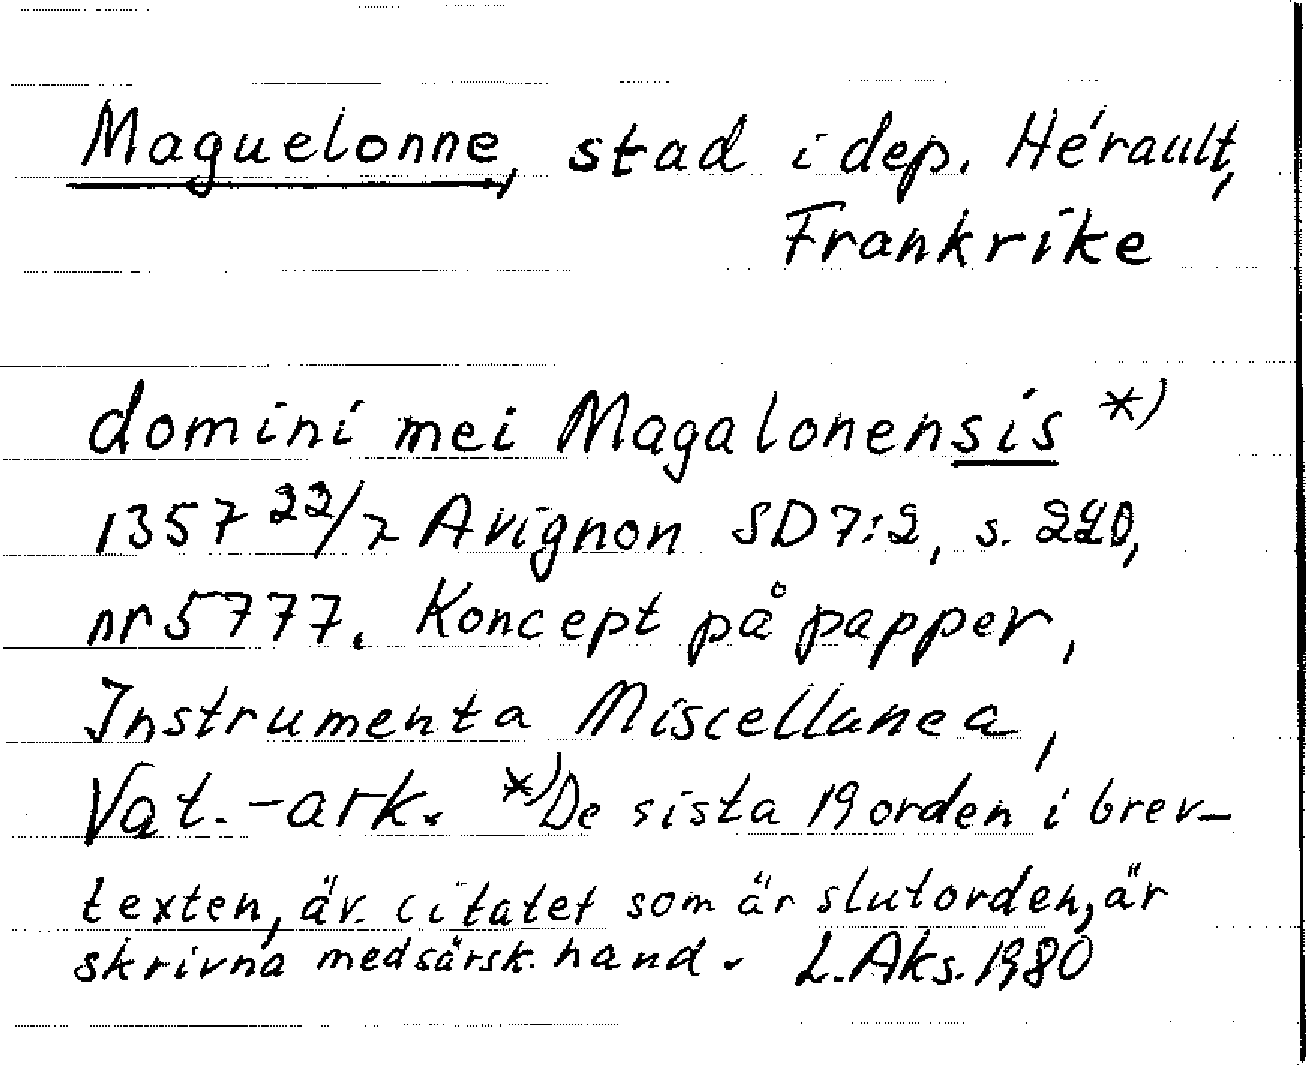 Maguelonne, stad i dep. Hérault,
Frankrike
domini mei Magalonensis *)
1357 22/7 Avignon SD 7:2, s. 220,
nr 5777. Koncept på papper,
Instrumenta Miscellanea,
Vat.-ark. *) De sista 19 orden i brev-
texten, äv. citatet som är slutorden, är
skrivna med särsk. hand. L. Aks. 1980